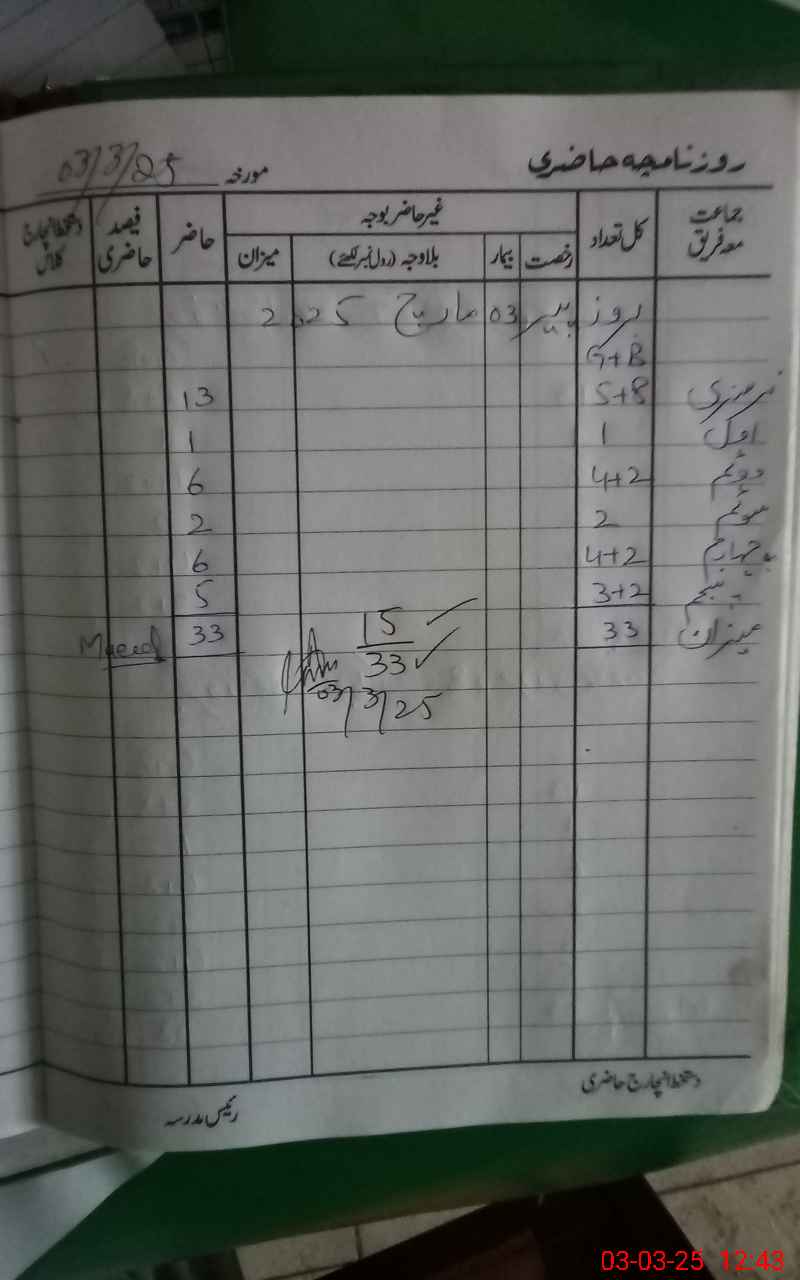 روزنامچہ حاضری
مورخہ 03/3/25
جماعت معہ فریق کل تعداد غیر حاضر بوجہ حاضر فیصد حاضری دستخط انچارج کلاس
رخصت بیمار بلاوجہ (رول نمبر لکھئے) میزان
روز پیر 03 مارچ 2025
G+B
نرسری 5+8 13
اول 1 1
دوئم 4+2 6
سوئم 2 2
چہارم 4+2 6
پنجم 3+2 5
میزان 33 33
15
33
03/3/25
دستخط انچارج حاضری
رئیس مدرسہ
03-03-25 12:43